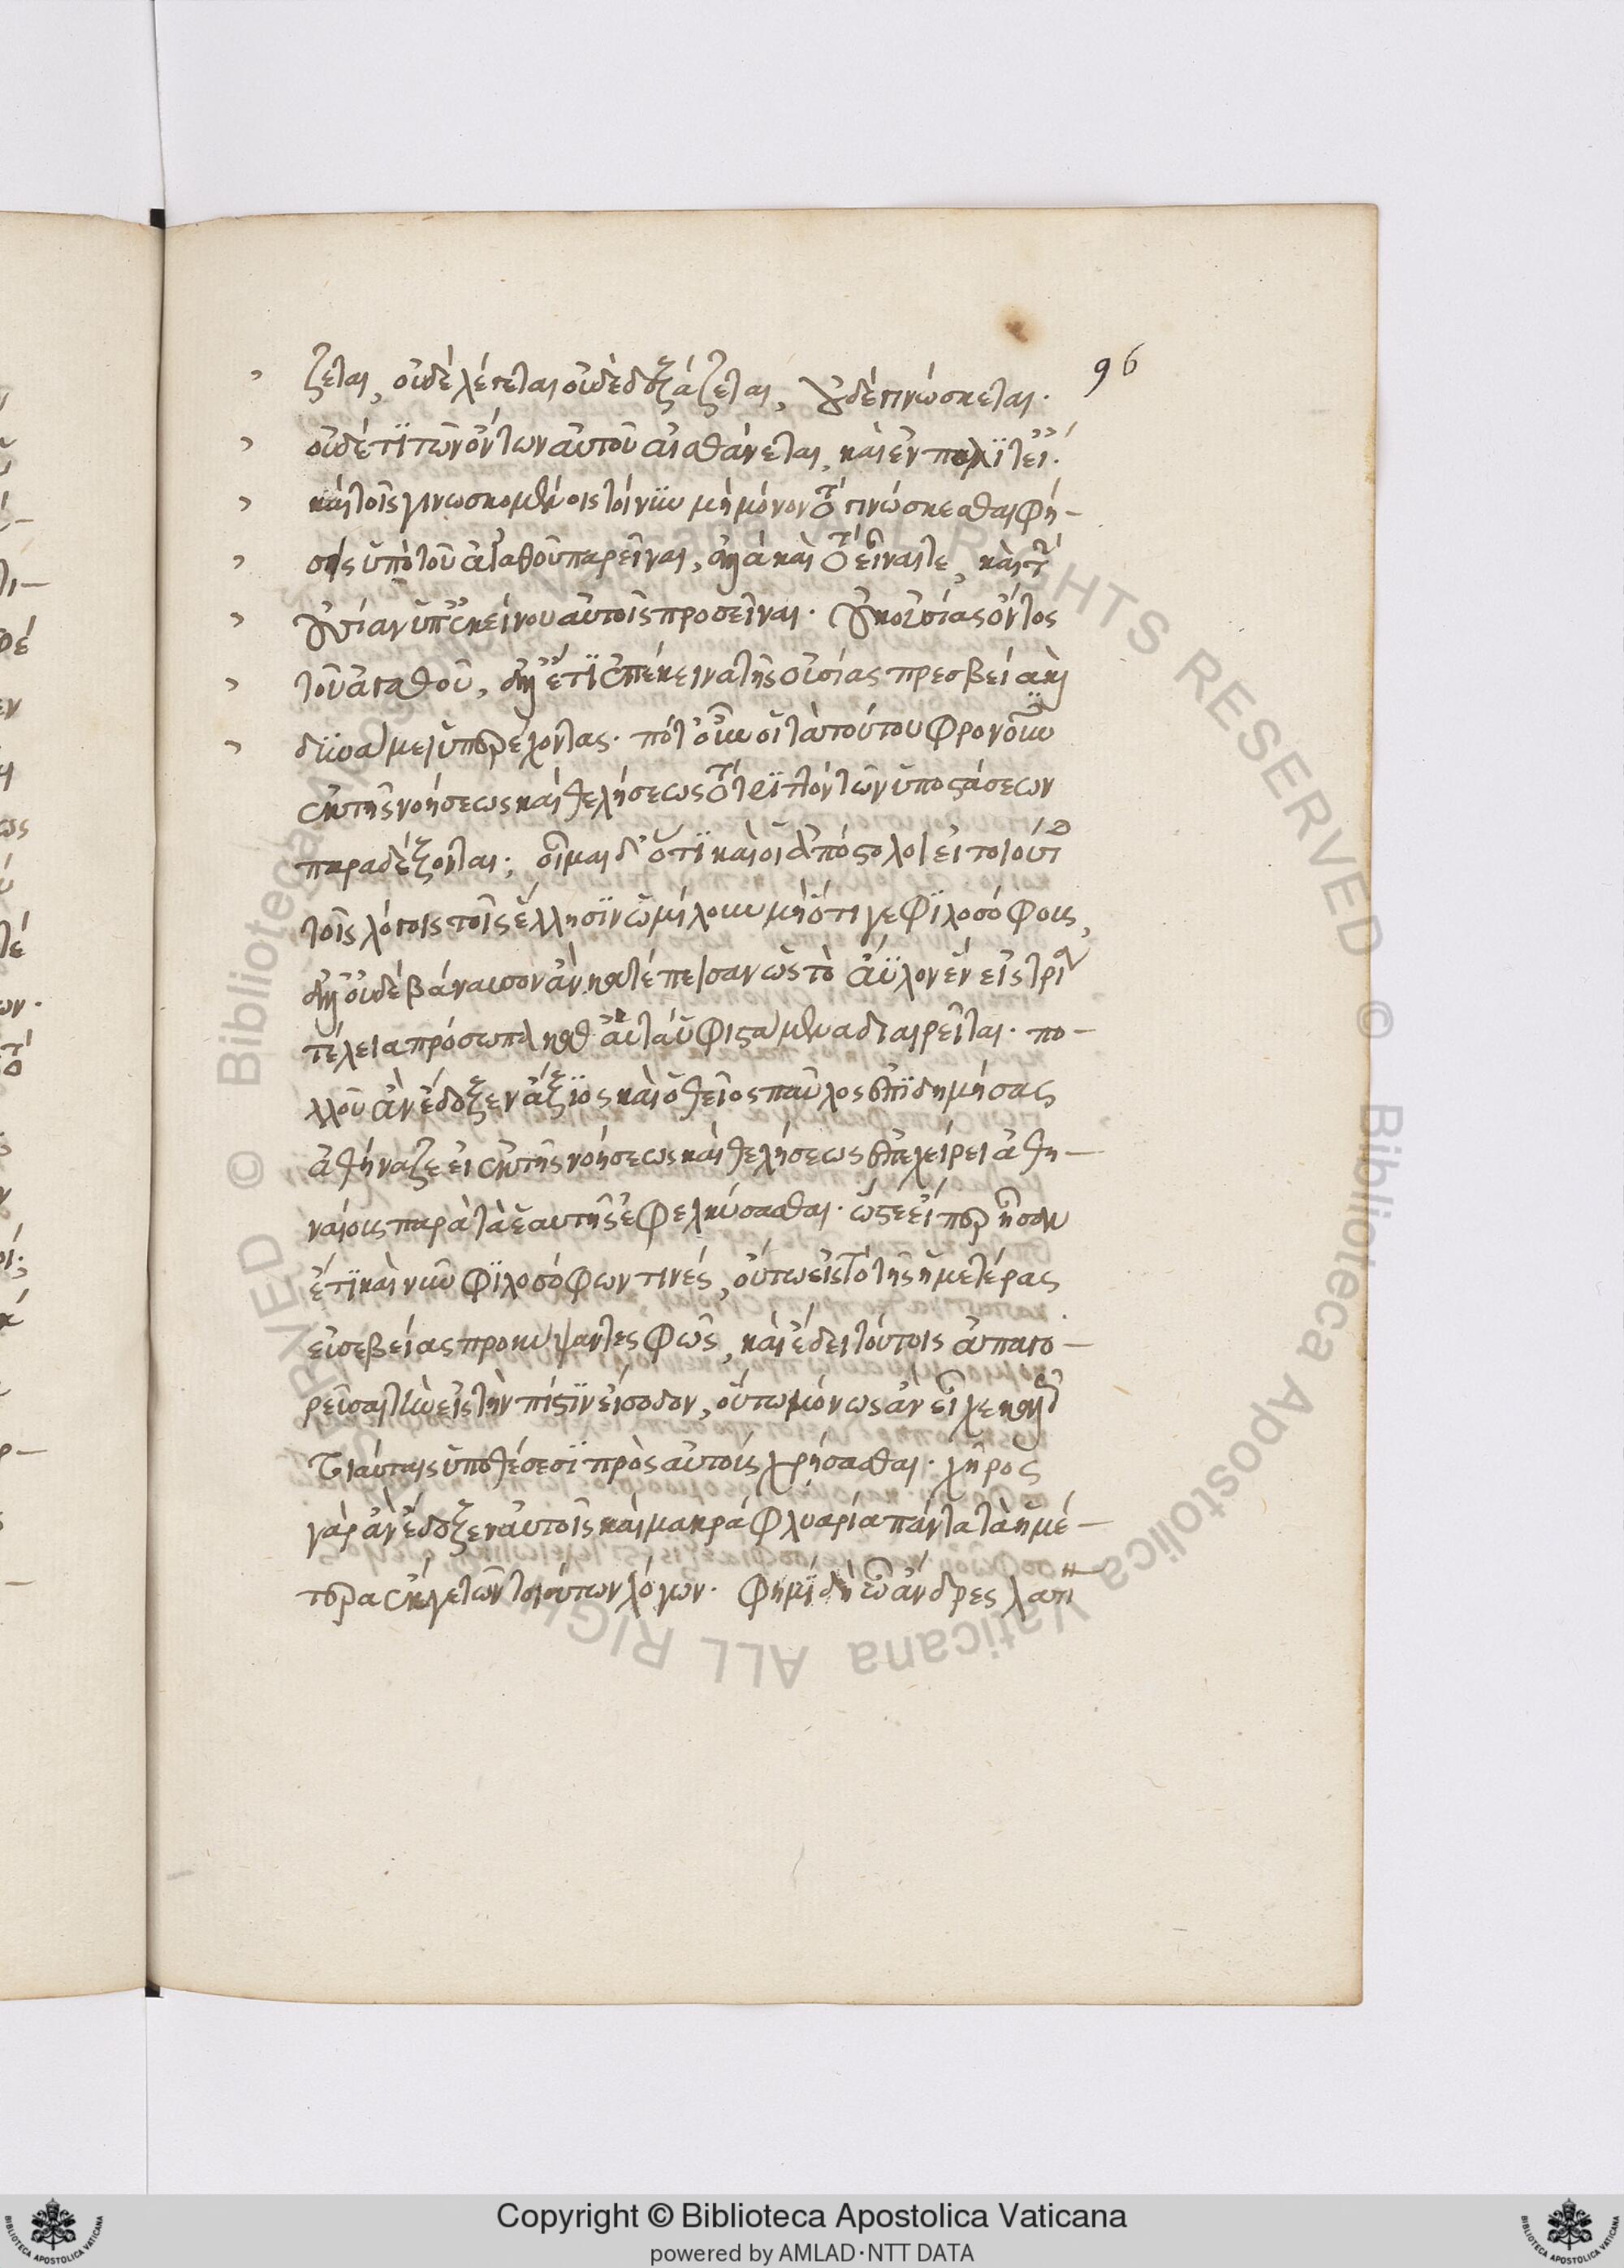 96
ζεται, οὐδὲ λέγεται οὐδὲ δοξάζεται, οὐδὲ γινώσκεται.
οὐδέ τι τῶν ὄντων αὐτοῦ αἰσθάνεται, καὶ ἐν πολιτεί.
καὶ τοῖς γινωσκομένοις τοίνυν μὴ μόνον τὸ γινώσκεσθαι φή-
σεις ὑπὸ τοῦ ἀγαθοῦ παρεῖναι, ἀλλὰ καὶ τὸ εἶναί τε, καὶ τὴν
οὐσίαν ὑπ' ἐκείνου αὐτοῖς προσεῖναι. οὐκ οὐσίας ὄντος
τοῦ ἀγαθοῦ, ἀλλ' ἔτι ἐπέκεινα τῆς οὐσίας πρεσβείᾳ καὶ
δυνάμει ὑπερέχοντος. πότ' οὖν οἱ τὰ τούτου φρονοῦν
ἐκ τῆς νοήσεως καὶ θελήσεως τὸ τριττὸν τῶν ὑποστάσεων
παραδέξονται; οἶμαι δ' ὅτι καὶ οἱ ἀπόστολοι εἰ τοιούτοις
τοῖς λόγοις τοῖς ἕλλησιν ὡμίλουν μὴ ὅτι γε φιλοσόφους,
ἀλλ' οὐδὲ βάναυσον ἂν κατέπεισαν ὡς τὸ ἄϋλον ἓν εἰς τρία
τέλεια πρόσωπα καθ' αὑτὰ ὑφιστάμενα διαιρεῖται. πο-
λλοῦ ἂν ἔδοξεν ἄξιος καὶ ὁ θεῖος παῦλος ἐπιδημήσας
ἀθήναζε εἰ ἐκ τῆς νοήσεως καὶ θελήσεως ἐπεχείρει ἀθη-
ναίους παρὰ τὰ ἑαυτῆς ἐφελκύσασθαι. ὥστε εἰ περιῆσαν
ἔτι καὶ νῦν φιλοσόφων τινές, οὔπω εἰς τὸ τῆς ἡμετέρας
εὐσεβείας προκύψαντες φῶς, καὶ ἔδει τούτοις ἀπαγο-
ρεῦσαι τὴν εἰς τὴν πίστιν εἴσοδον, οὕτω μόνως ἂν εἶχε
τοιαύταις ὑποθέσεσι πρὸς αὐτοὺς χρήσασθαι. λῆρος
γὰρ ἂν ἔδοξεν αὐτοῖς καὶ μακρὰ φλυαρία πάντα τὰ ἡμέ-
τερα ἔκ γε τῶν τοιούτων λόγων. φημὶ δὴ ὦ ἄνδρες λατῖ
Copyright © Biblioteca Apostolica Vaticana
powered by AMLAD·NTT DATA